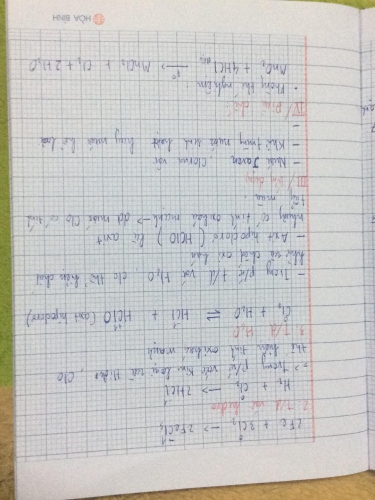 HÒA BÌNH
2Fe + 3Cl₂ → 2FeCl₃
2. T/d với hidro
H₂ + Cl₂ → 2HCl
=> Trong p/ứ với kim loại và Hidro, Clo
thể hiện tính oxi hoá mạnh
3. T/d H₂O
Cl₂ + H₂O ⇌ HCl + HClO (axit hipoclorơ)
- Trong p/ứ t/d với H₂O, clo thể hiện chất
khử và chất oxi hoá
- Axit hipoclorơ (HClO) là axit
có tính oxi hoá mạnh → nước Clo có tính
tẩy màu
III/ Ứng dụng
- Nước Javen, Clorua vôi
- Khử trùng nước sinh hoạt
-
IV/ Điều chế
• Phòng thí nghiệm
MnO₂ + 4HCl → MnCl₂ + Cl₂ + 2H₂O